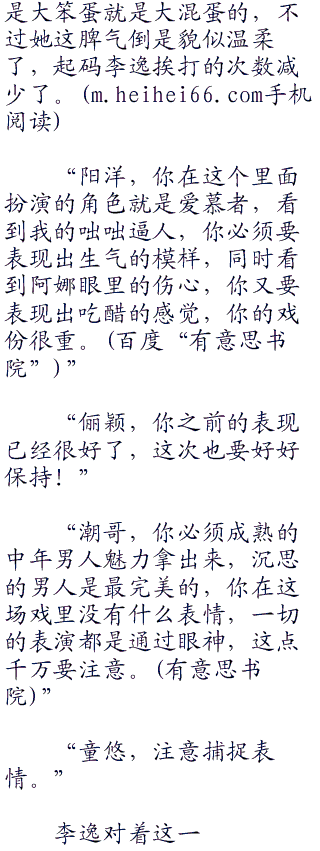 是大笨蛋就是大混蛋的，不
过她这脾气倒是貌似温柔
了，起码李逸挨打的次数减
少了。(m.heihei66.com手机
阅读)
“阳洋，你在这个里面
扮演的角色就是爱慕者，看
到我的咄咄逼人，你必须要
表现出生气的模样，同时看
到阿娜眼里的伤心，你又要
表现出吃醋的感觉，你的戏
份很重。(百度“有意思书
院”)”
“俪颖，你之前的表现
已经很好了，这次也要好好
保持！”
“潮哥，你必须成熟的
中年男人魅力拿出来，沉思
的男人是最完美的，你在这
场戏里没有什么表情，一切
的表演都是通过眼神，这点
千万要注意。(有意思书
院)”
“童悠，注意捕捉表
情。”
李逸对着这一